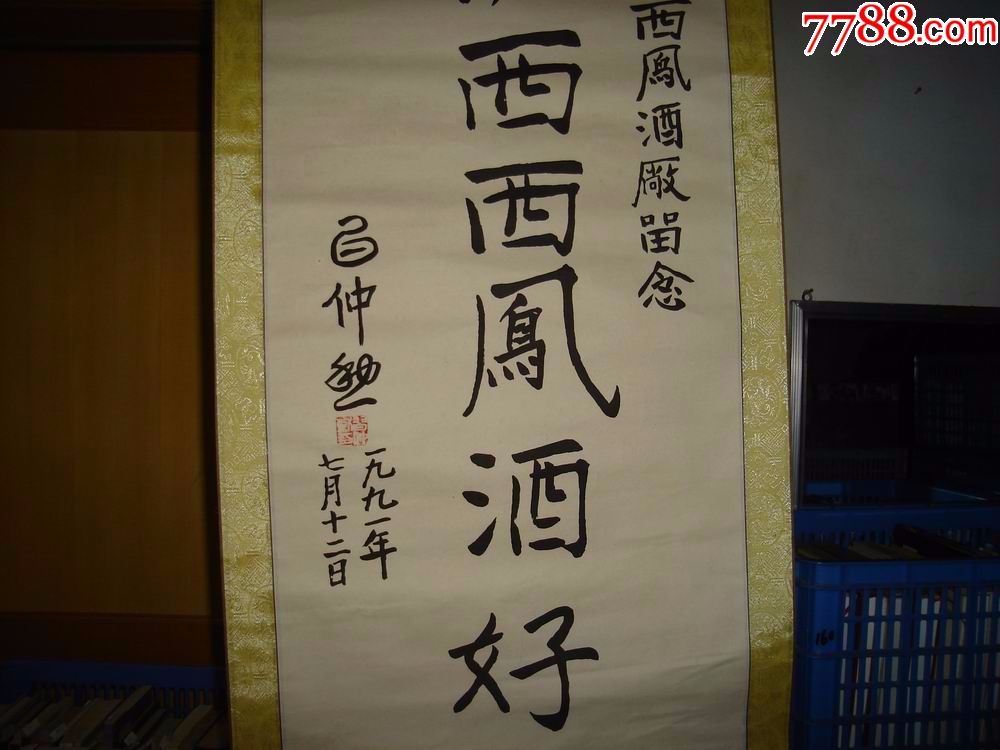 西鳳酒厰留念
西西鳳酒好
習仲勳
一九九一年
七月十二日
7788.com
160